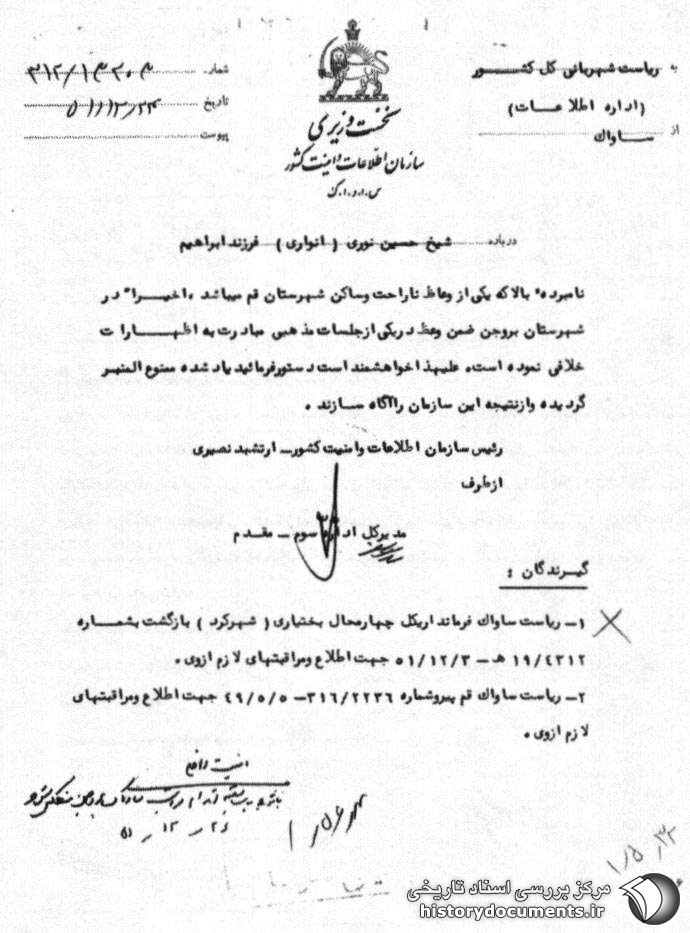 به ریاست شهربانی کل کشور
(اداره اطلاعات)
از ساواک
نخست وزیری
سازمان اطلاعات و امنیت کشور
س.ا.و.ا.ک
شماره ۳۱۲/۱۳۳۰۳
تاریخ ۵۱/۱۲/۲۳
پیوست
درباره شیخ حسین نوری (انواری) فرزند ابراهیم
نامبرده بالا که یکی از وعاظ ناراحت و ساکن شهرستان قم میباشد ، اخیراً در
شهرستان بروجن ضمن وعظ در یکی از جلسات مذهبی مبادرت به اظهارات
خلافی نموده است، علیهذا خواهشمند است دستور فرمائید یاد شده ممنوع المنبر
گردیده و از نتیجه این سازمان را آگاه سازند .
رئیس سازمان اطلاعات و امنیت کشور - ارتشبد نصیری
از طرف
مدیرکل اداره سوم - مقدم
گیرندگان :
۱- ریاست ساواک فرمانداریکل چهارمحال بختیاری (شهرکرد) بازگشت بشماره
۱۹/۴۳۱۲ ه - ۵۱/۱۲/۳ جهت اطلاع و مراقبتهای لازم از وی .
۲- ریاست ساواک قم پیرو شماره ۳۱۶/۲۲۳۶ - ۴۹/۵/۵ جهت اطلاع و مراقبتهای
لازم از وی .
مرکز بررسی اسناد تاریخی
historydocuments.ir